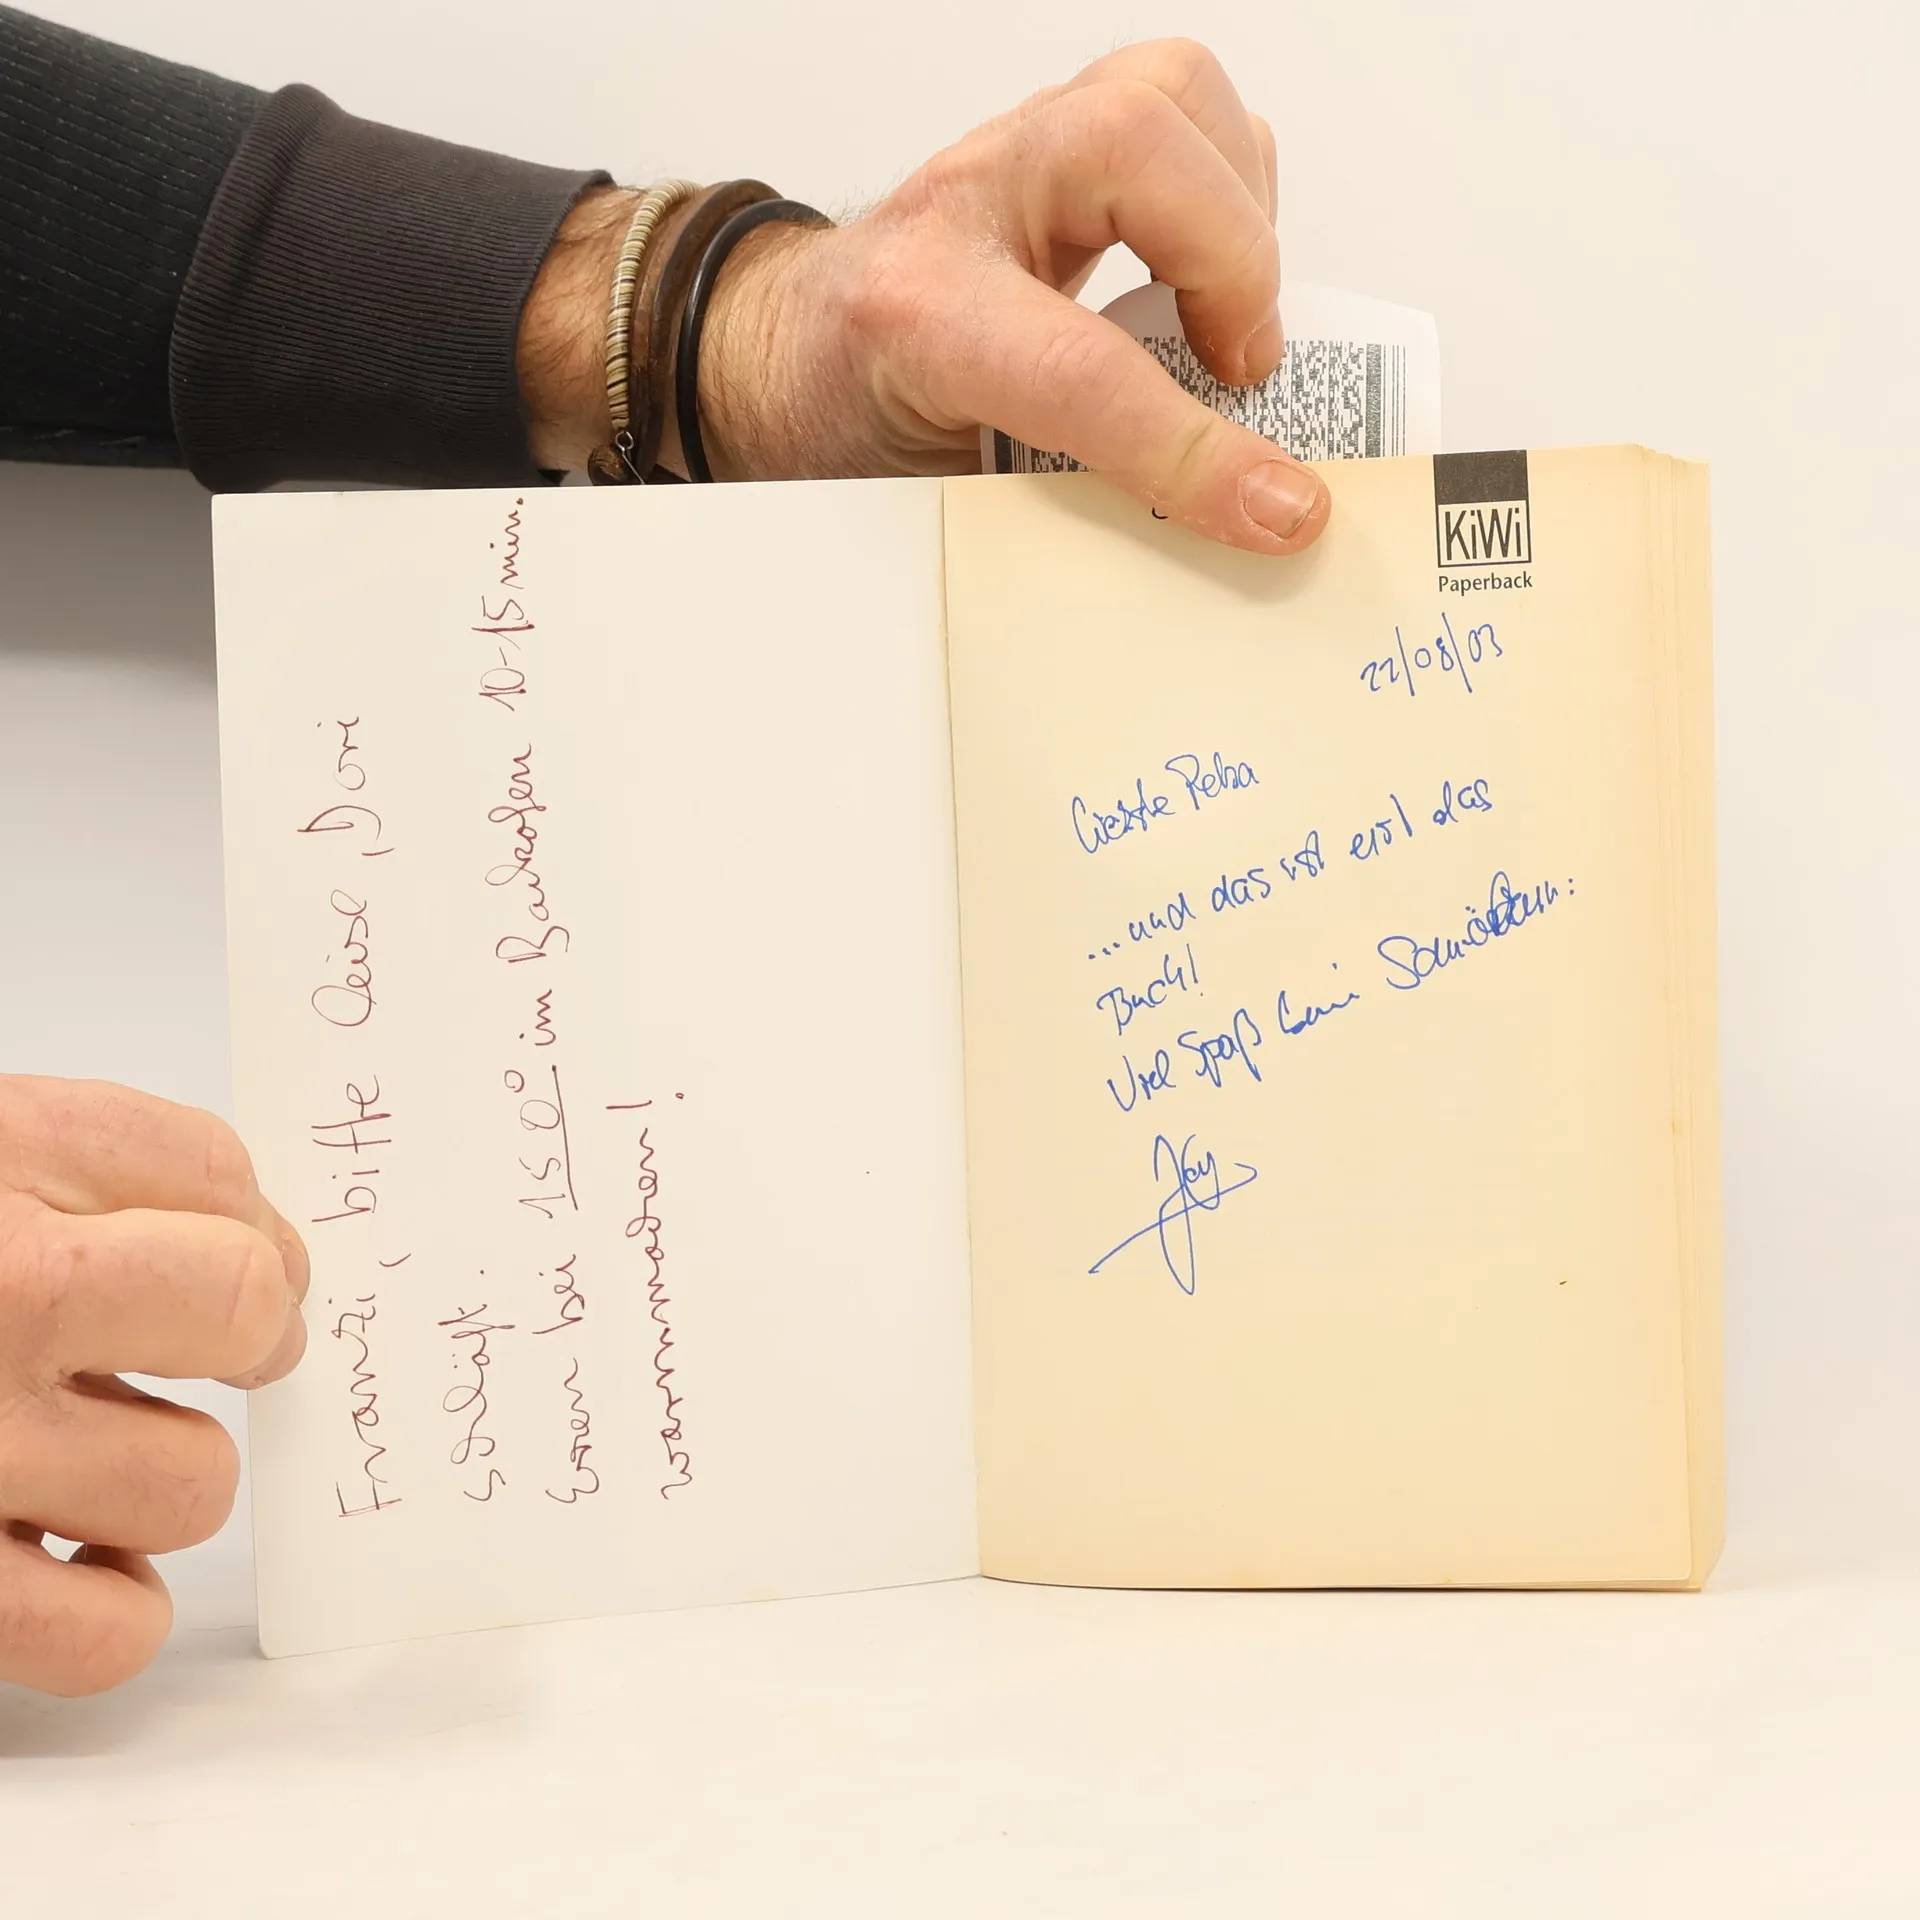 Franzi, bitte leise, Dori
schläft.
Essen bei 150° im Backofen 10-15 min.
warmmachen!
KiWi
Paperback
22/08/03
Liebste Reba
...und das ist erst das
Buch!
Viel Spaß beim Schmökern:
Jay